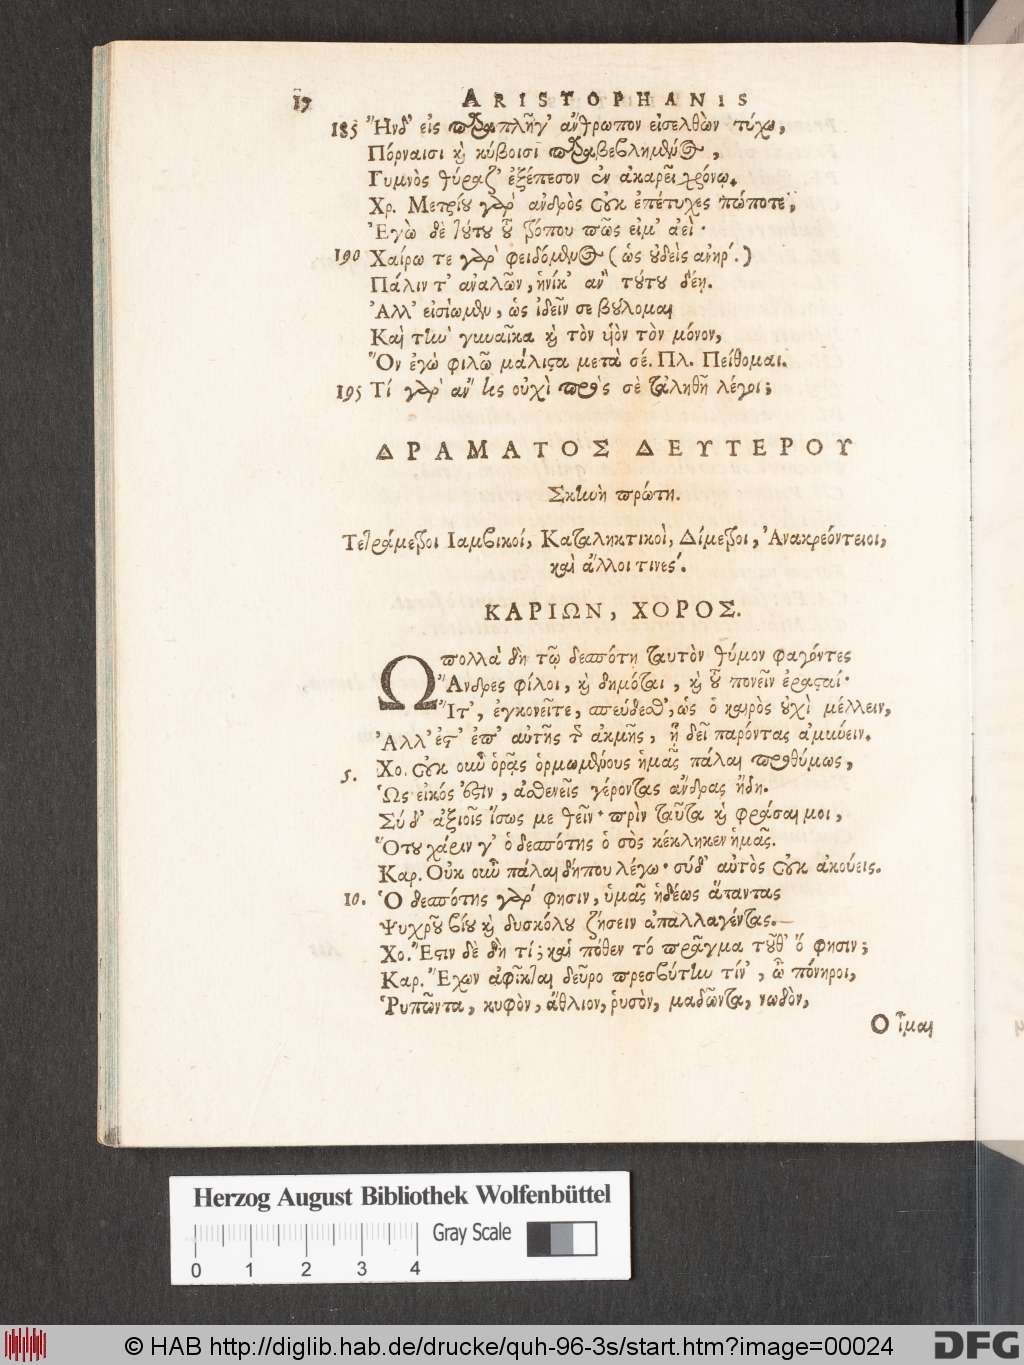 17 ARISTOPHANIS
185 Ἢνδ' εἰς παραπλῆγ' ἄνθρωπον εἰσελθὼν τύχω,
Πόρναισι καὶ κύβοισι παραβεβλημένος,
Γυμνὸς θύραζ' ἐξέπεσον ἐν ἀκαρεῖ χρόνῳ.
Χρ. Μετρίου γὰρ ἀνδρὸς οὐκ ἐπέτυχες πώποτε,
Ἐγὼ δὲ τούτου τοῦ τρόπου πῶς εἰμ' ἀεί.
190 Χαίρω τε γὰρ φειδόμενος (ὡς οὐδεὶς ἀνήρ.)
Πάλιν τ' ἀναλῶν, ἡνίκ' ἂν τούτου δέῃ.
Ἀλλ' εἰσίωμεν, ὡς ἰδεῖν σε βούλομαι
Καὶ τὴν γυναῖκα καὶ τὸν υἱὸν τὸν μόνον,
Ὃν ἐγὼ φιλῶ μάλιστα μετὰ σέ. Πλ. Πείθομαι.
195 Τί γὰρ ἄν τις οὐχὶ πρὸς σὲ τἀληθῆ λέγοι;
ΔΡΑΜΑΤΟΣ ΔΕΥΤΕΡΟΥ
Σκηνὴ πρώτη.
Τετράμετροι Ιαμβικοί, Καταληκτικοὶ, Δίμετροι, Ἀνακρεόντειοι,
καὶ ἄλλοι τινές.
ΚΑΡΙΩΝ, ΧΟΡΟΣ.
Ω πολλὰ δὴ τῷ δεσπότῃ ταυτὸν θύμον φαγόντες
Ἄνδρες φίλοι, καὶ δημόται, καὶ τοῦ πονεῖν ἐρασταί·
Ἴτ', ἐγκονεῖτε, σπεύδεθ', ὡς ὁ καιρὸς οὐχὶ μέλλειν,
Ἀλλ' ἔστ' ἐπ' αὐτῆς τῆς ἀκμῆς, ᾗ δεῖ παρόντας ἀμύνειν.
5. Χο. Οὐκ οὖν ὁρᾷς ὁρμωμένους ἡμᾶς πάλαι προθύμως,
Ὡς εἰκός ἐστιν, ἀσθενεῖς γέροντας ἄνδρας ἤδη.
Σύ δ' ἀξιοῖς ἴσως με θεῖν· πρὶν ταῦτα καὶ φράσαι μοι,
Ὅτου χάριν γ' ὁ δεσπότης ὁ σὸς κέκληκεν ἡμᾶς.
Καρ. Οὐκ οὖν πάλαι δήπου λέγω· σύδ' αὐτὸς οὐκ ἀκούεις.
10. Ὁ δεσπότης γάρ φησιν, ὑμᾶς ἡδέως ἅπαντας
Ψυχροῦ βίου καὶ δυσκόλου ζήσειν ἀπαλλαγέντας.
Χο. Ἔστιν δὲ δὴ τί; καὶ πόθεν τό πρᾶγμα τοῦθ' ὅ φησιν;
Καρ. Ἔχων ἀφῖκται δεῦρο πρεσβύτην τίν', ὦ πόνηροι,
Ῥυπῶντα, κυφὸν, ἄθλιον, ῥυσὸν, μαδῶντα, νωδὸν,
Οἶμαι
Herzog August Bibliothek Wolfenbüttel
Gray Scale
0 1 2 3 4
© HAB http://diglib.hab.de/drucke/quh-96-3s/start.htm?image=00024
DFG